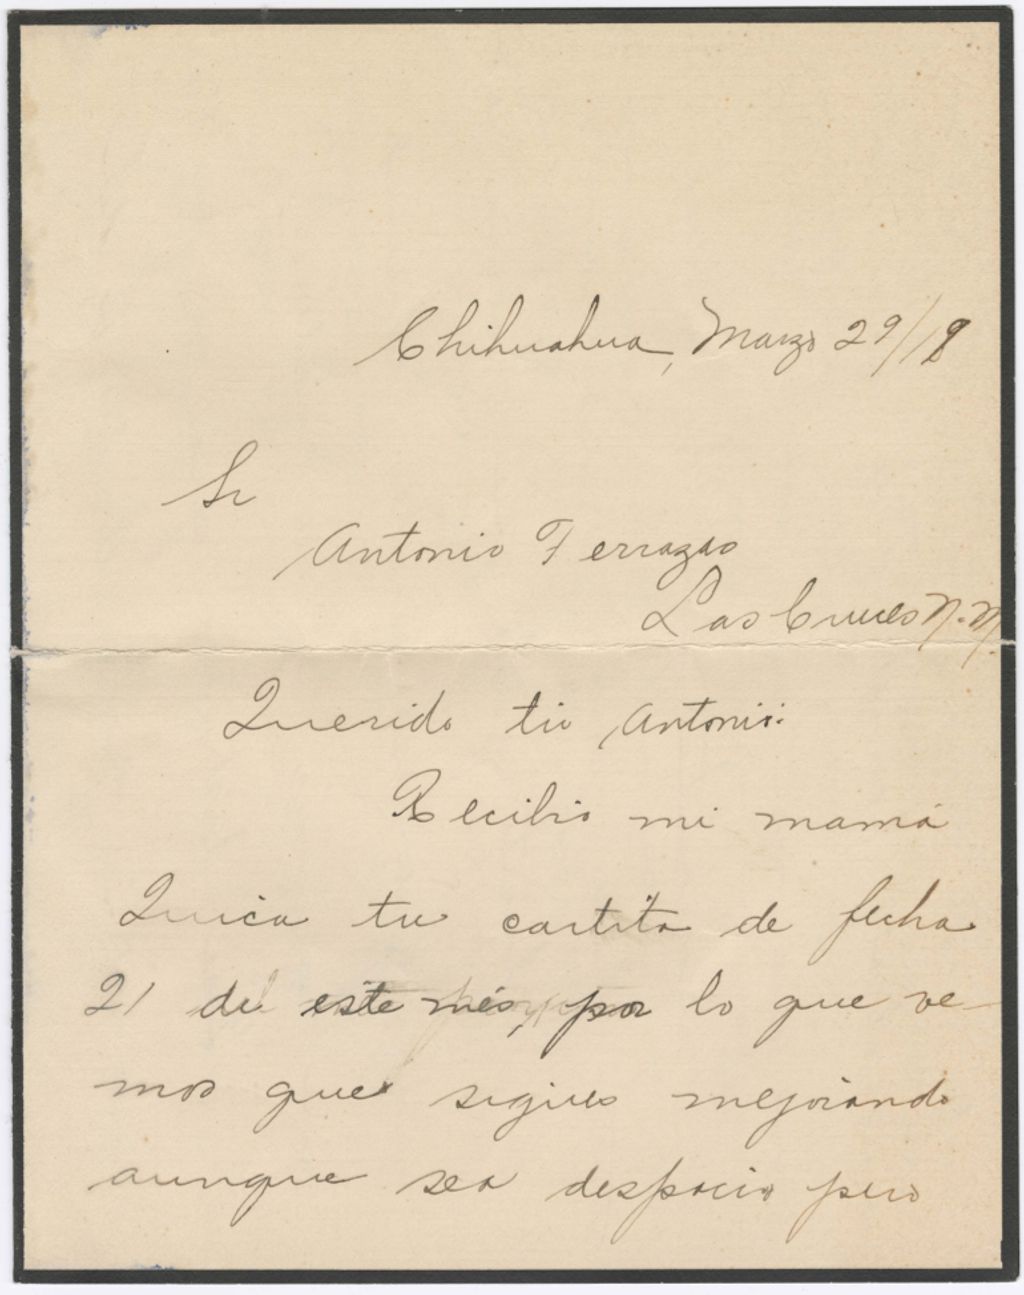 Chihuahua, Marzo 29/18
Sr
Antonio Terrazas
Las Cruces N. M.
Querido tio Antonio:
Recibio mi mamá
Quica tu cartita de fecha
21 de este més, por lo que ve-
mos que sigues mejorando
aunque sea despacio pero